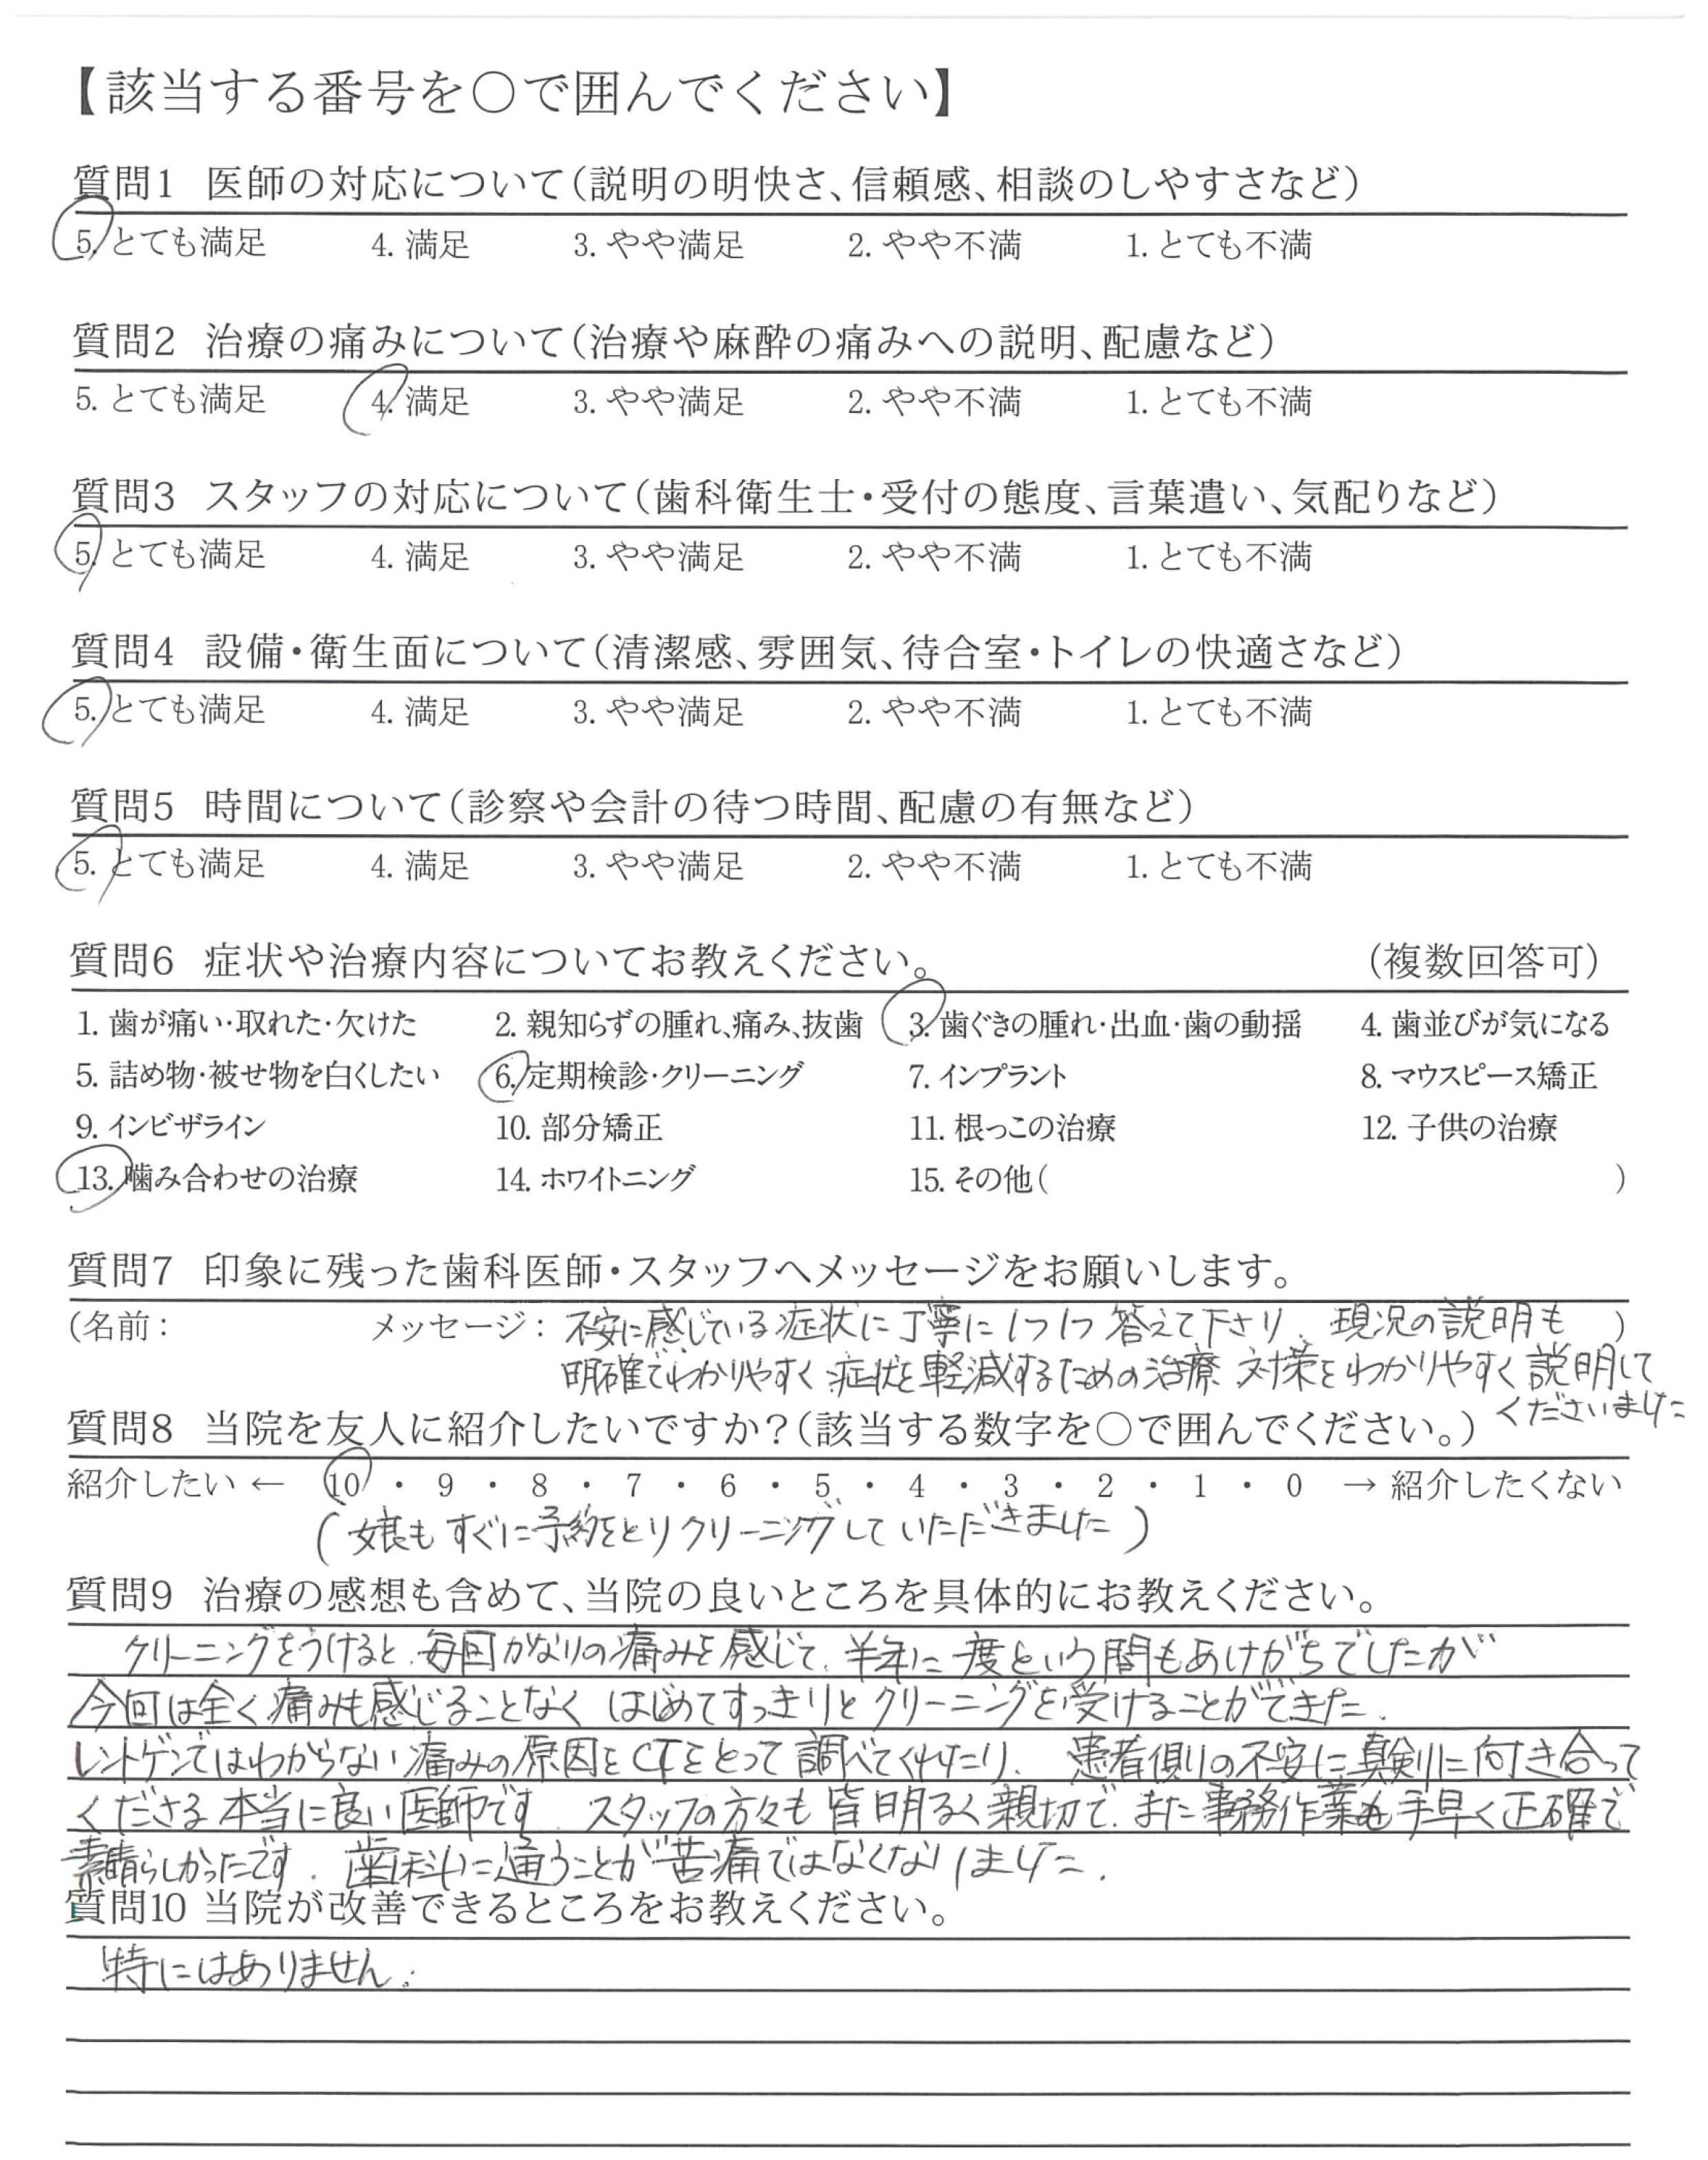 【該当する番号を○で囲んでください】
質問1 医師の対応について(説明の明快さ、信頼感、相談のしやすさなど)
5. とても満足 4. 満足 3. やや満足 2. やや不満 1. とても不満
質問2 治療の痛みについて(治療や麻酔の痛みへの説明、配慮など)
5. とても満足 4. 満足 3. やや満足 2. やや不満 1. とても不満
質問3 スタッフの対応について(歯科衛生士・受付の態度、言葉遣い、気配りなど)
5. とても満足 4. 満足 3. やや満足 2. やや不満 1. とても不満
質問4 設備・衛生面について(清潔感、雰囲気、待合室・トイレの快適さなど)
5. とても満足 4. 満足 3. やや満足 2. やや不満 1. とても不満
質問5 時間について(診察や会計の待つ時間、配慮の有無など)
5. とても満足 4. 満足 3. やや満足 2. やや不満 1. とても不満
質問6 症状や治療内容についてお教えください。 (複数回答可)
1. 歯が痛い・取れた・欠けた 2. 親知らずの腫れ、痛み、抜歯 3. 歯ぐきの腫れ・出血・歯の動揺 4. 歯並びが気になる
5. 詰め物・被せ物を白くしたい 6. 定期検診・クリーニング 7. インプラント 8. マウスピース矯正
9. インビザライン 10. 部分矯正 11. 根っこの治療 12. 子供の治療
13. 噛み合わせの治療 14. ホワイトニング 15. その他( )
質問7 印象に残った歯科医師・スタッフへメッセージをお願いします。
(名前: メッセージ: 不安に感じている症状に丁寧に1つ1つ答えて下さり、現況の説明も )
明確でわかりやすく 症状を軽減するための治療 対策をわかりやすく説明して
くださいました
質問8 当院を友人に紹介したいですか?(該当する数字を○で囲んでください。)
紹介したい ← 10 ・ 9 ・ 8 ・ 7 ・ 6 ・ 5 ・ 4 ・ 3 ・ 2 ・ 1 ・ 0 → 紹介したくない
(娘もすぐに予約をとりクリーニングしていただきました)
質問9 治療の感想も含めて、当院の良いところを具体的にお教えください。
クリーニングをうけると、毎回かなりの痛みを感じて、半年に一度という間もあけがちでしたが
今回は全く痛みも感じることなく はじめてすっきりとクリーニングを受けることができた.
レントゲンではわからない痛みの原因をCTをとって調べてくれたり、患者側の不安に真剣に向き合って
くださる本当に良い医師です. スタッフの方々も皆明るく親切で、また事務作業も手早く正確で
素晴らしかったです. 歯科に通うことが苦痛ではなくなりました.
質問10 当院が改善できるところをお教えください。
特にはありません.